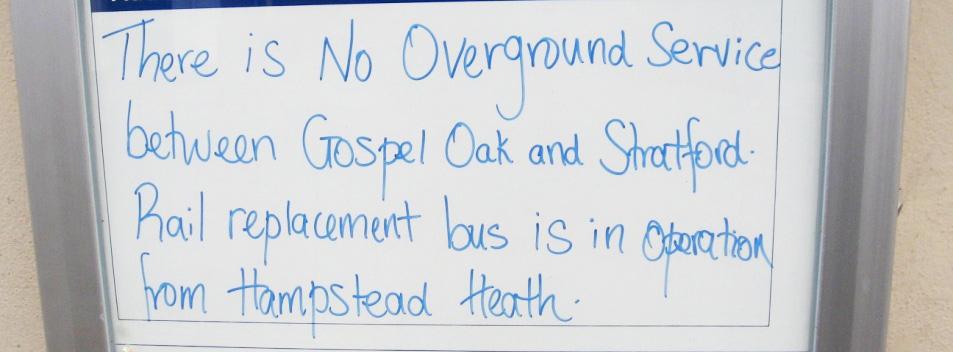 There is No Overground Service
between Gospel Oak and Stratford.
Rail replacement bus is in operation
from Hampstead Heath.